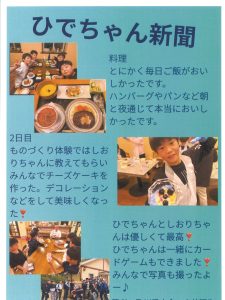 ひでちゃん新聞
料理
とにかく毎日ご飯がおい
しかったです。
ハンバーグやパンなど朝
と夜通じて本当においし
かったです。
2日目
ものづくり体験ではしお
りちゃんに教えてもらい
みんなでチーズケーキを
作った。デコレーション
などをして美味しくなっ
た❣️
ひでちゃんとしおりちゃ
んは優しくて最高❣️
ひでちゃんは一緒にカー
ドゲームもできました❣️
みんなで写真も撮ったよ
ー♪